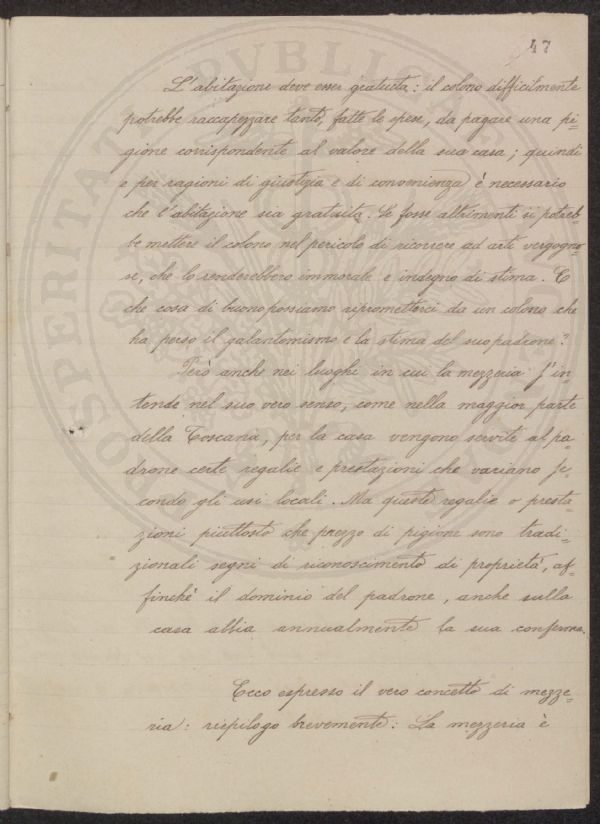 47
L'abitazione deve esser gratuita: il colono difficilmente
potrebbe raccapezzare tanto, fatte le spese, da pagare una pi-
gione corrispondente al valore della sua casa; quindi
e per ragioni di giustizia e di convenienza è necessario
che l'abitazione sia gratuita. Se fosse altrimenti si potreb-
be mettere il colono nel pericolo di ricorrere ad arti vergogno-
se, che lo renderebbero immorale e indegno di stima. E
che cosa di buono possiamo riprometterci da un colono che
ha perso il galantomismo e la stima del suo padrone?
Però anche nei luoghi in cui la mezzeria s'in-
tende nel suo vero senso, come nella maggior parte
della Toscana, per la casa vengono servite al pa-
drone certe regalie e prestazioni che variano se-
condo gli usi locali. Ma queste regalie o presta-
zioni piuttosto che prezzo di pigione sono tradi-
zionali segni di riconoscimento di proprietà, af-
finchè il dominio del padrone, anche sulla
casa abbia annualmente la sua conferma.
Ecco espresso il vero concetto di mezze-
ria: riepilogo brevemente: La mezzeria è
PROSPERITATI PVBLICAE